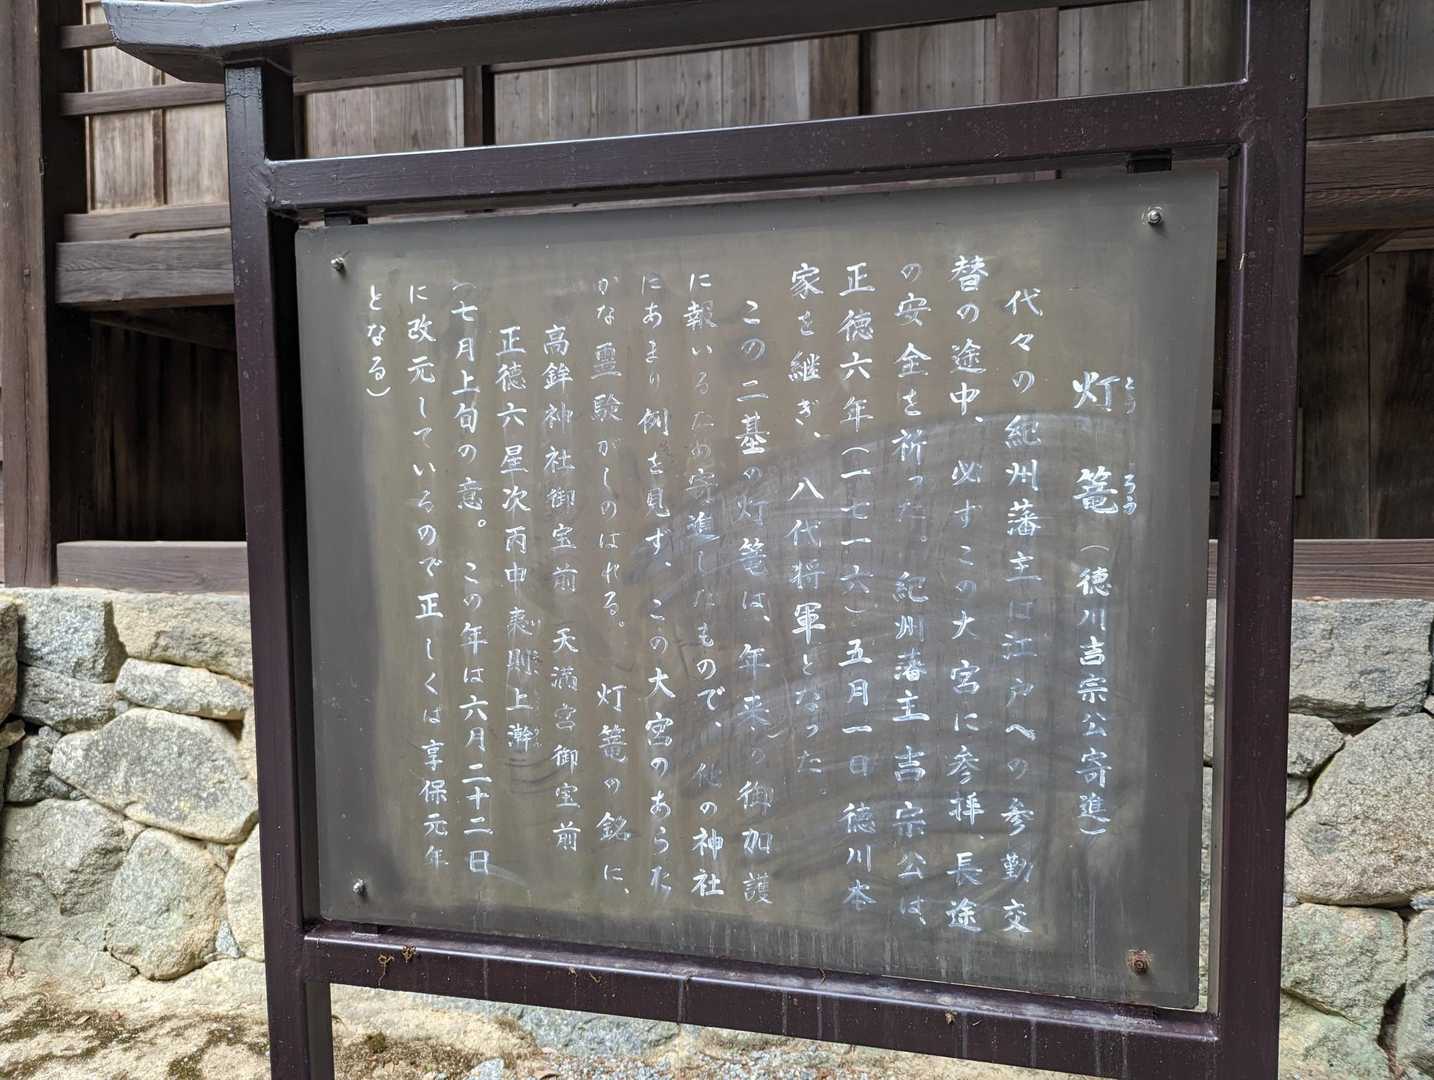 灯篭（徳川吉宗公寄進）
とうろう
代々の紀州藩主は江戸への参勤交
替の途中、必ずこの大宮に参拝、長途
の安全を祈った。紀州藩主吉宗公は、
正徳六年（一七一六）五月一日徳川本
家を継ぎ、八代将軍となった。
この二基の灯篭は、年来の御加護
に報いるため寄進したもので、他の神社
にあまり例を見ず、この大宮のあらた
かな霊験がしのばれる。灯篭の銘に、
高鉾神社御宝前 天満宮御宝前
正徳六星次丙申夷則上澣
（七月上旬の意。この年は六月二十二日
に改元しているので正しくは享保元年
となる）